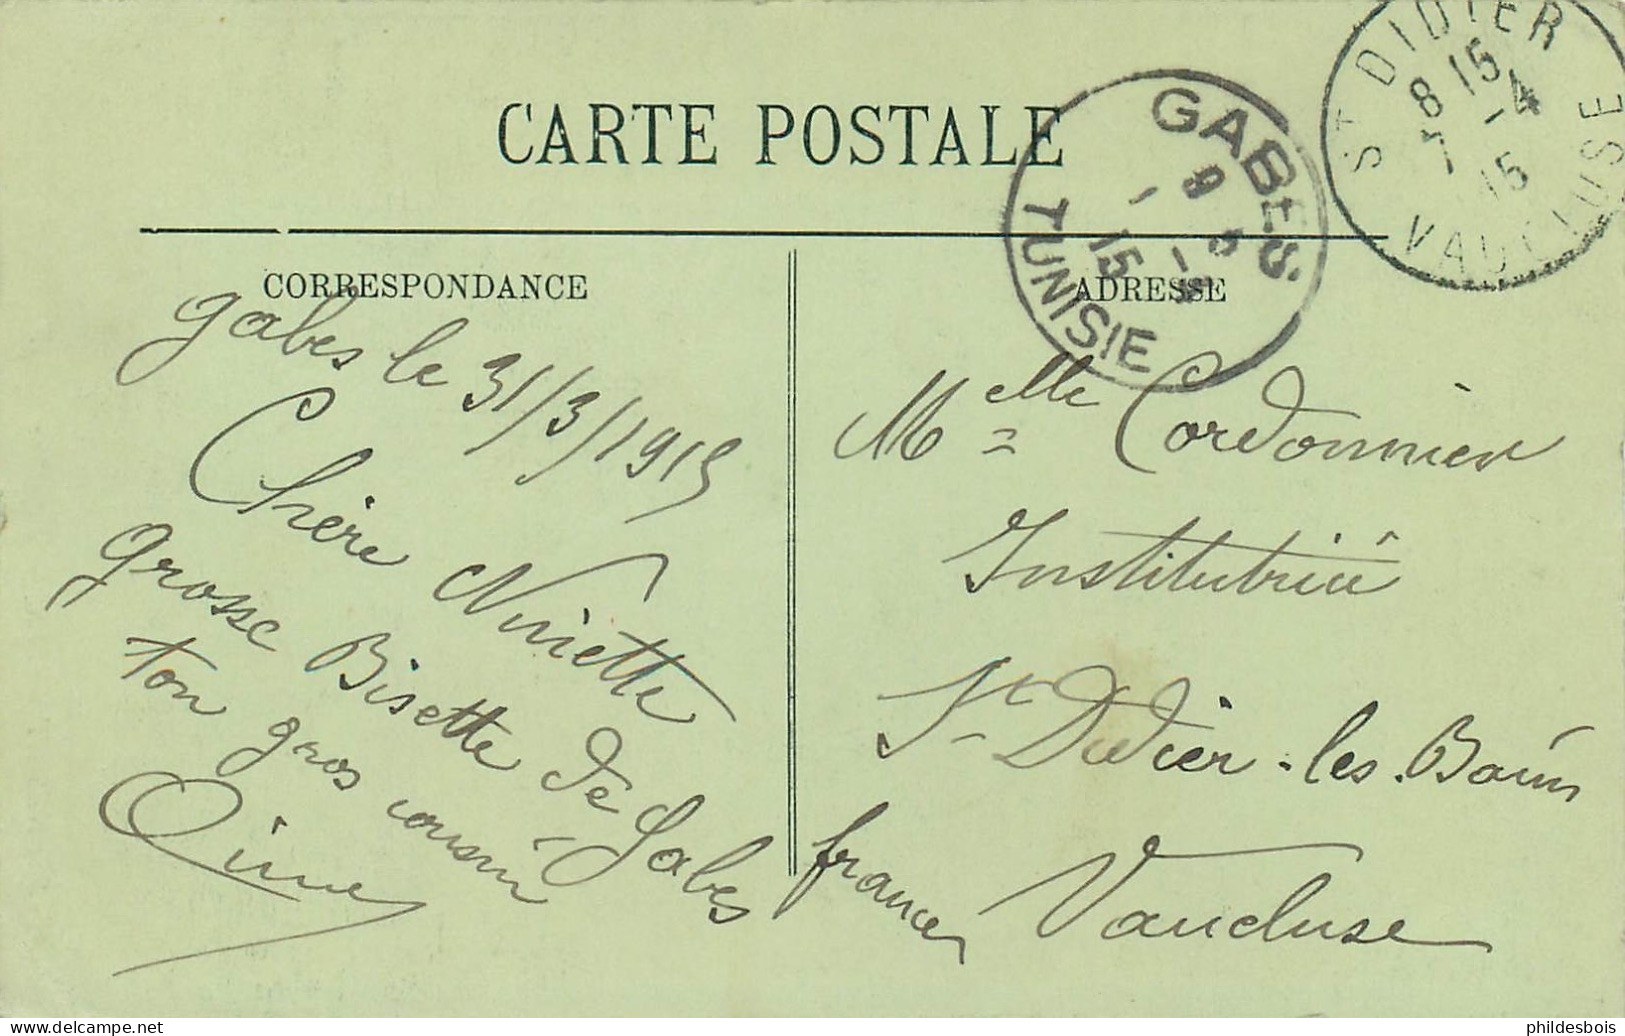 CARTE POSTALE
CORRESPONDANCE
ADRESSE
ST DIDIER
8 15
7 -4
15
VAUCLUSE
GABES
TUNISIE
15
Gabes le 31/3/1915
Chère Niniette
grosse Bisette de Gabes
ton gros cousin
Melle Cordonnier
Institutrice
St Didier-les-Bains
Vaucluse
france
philedesbois